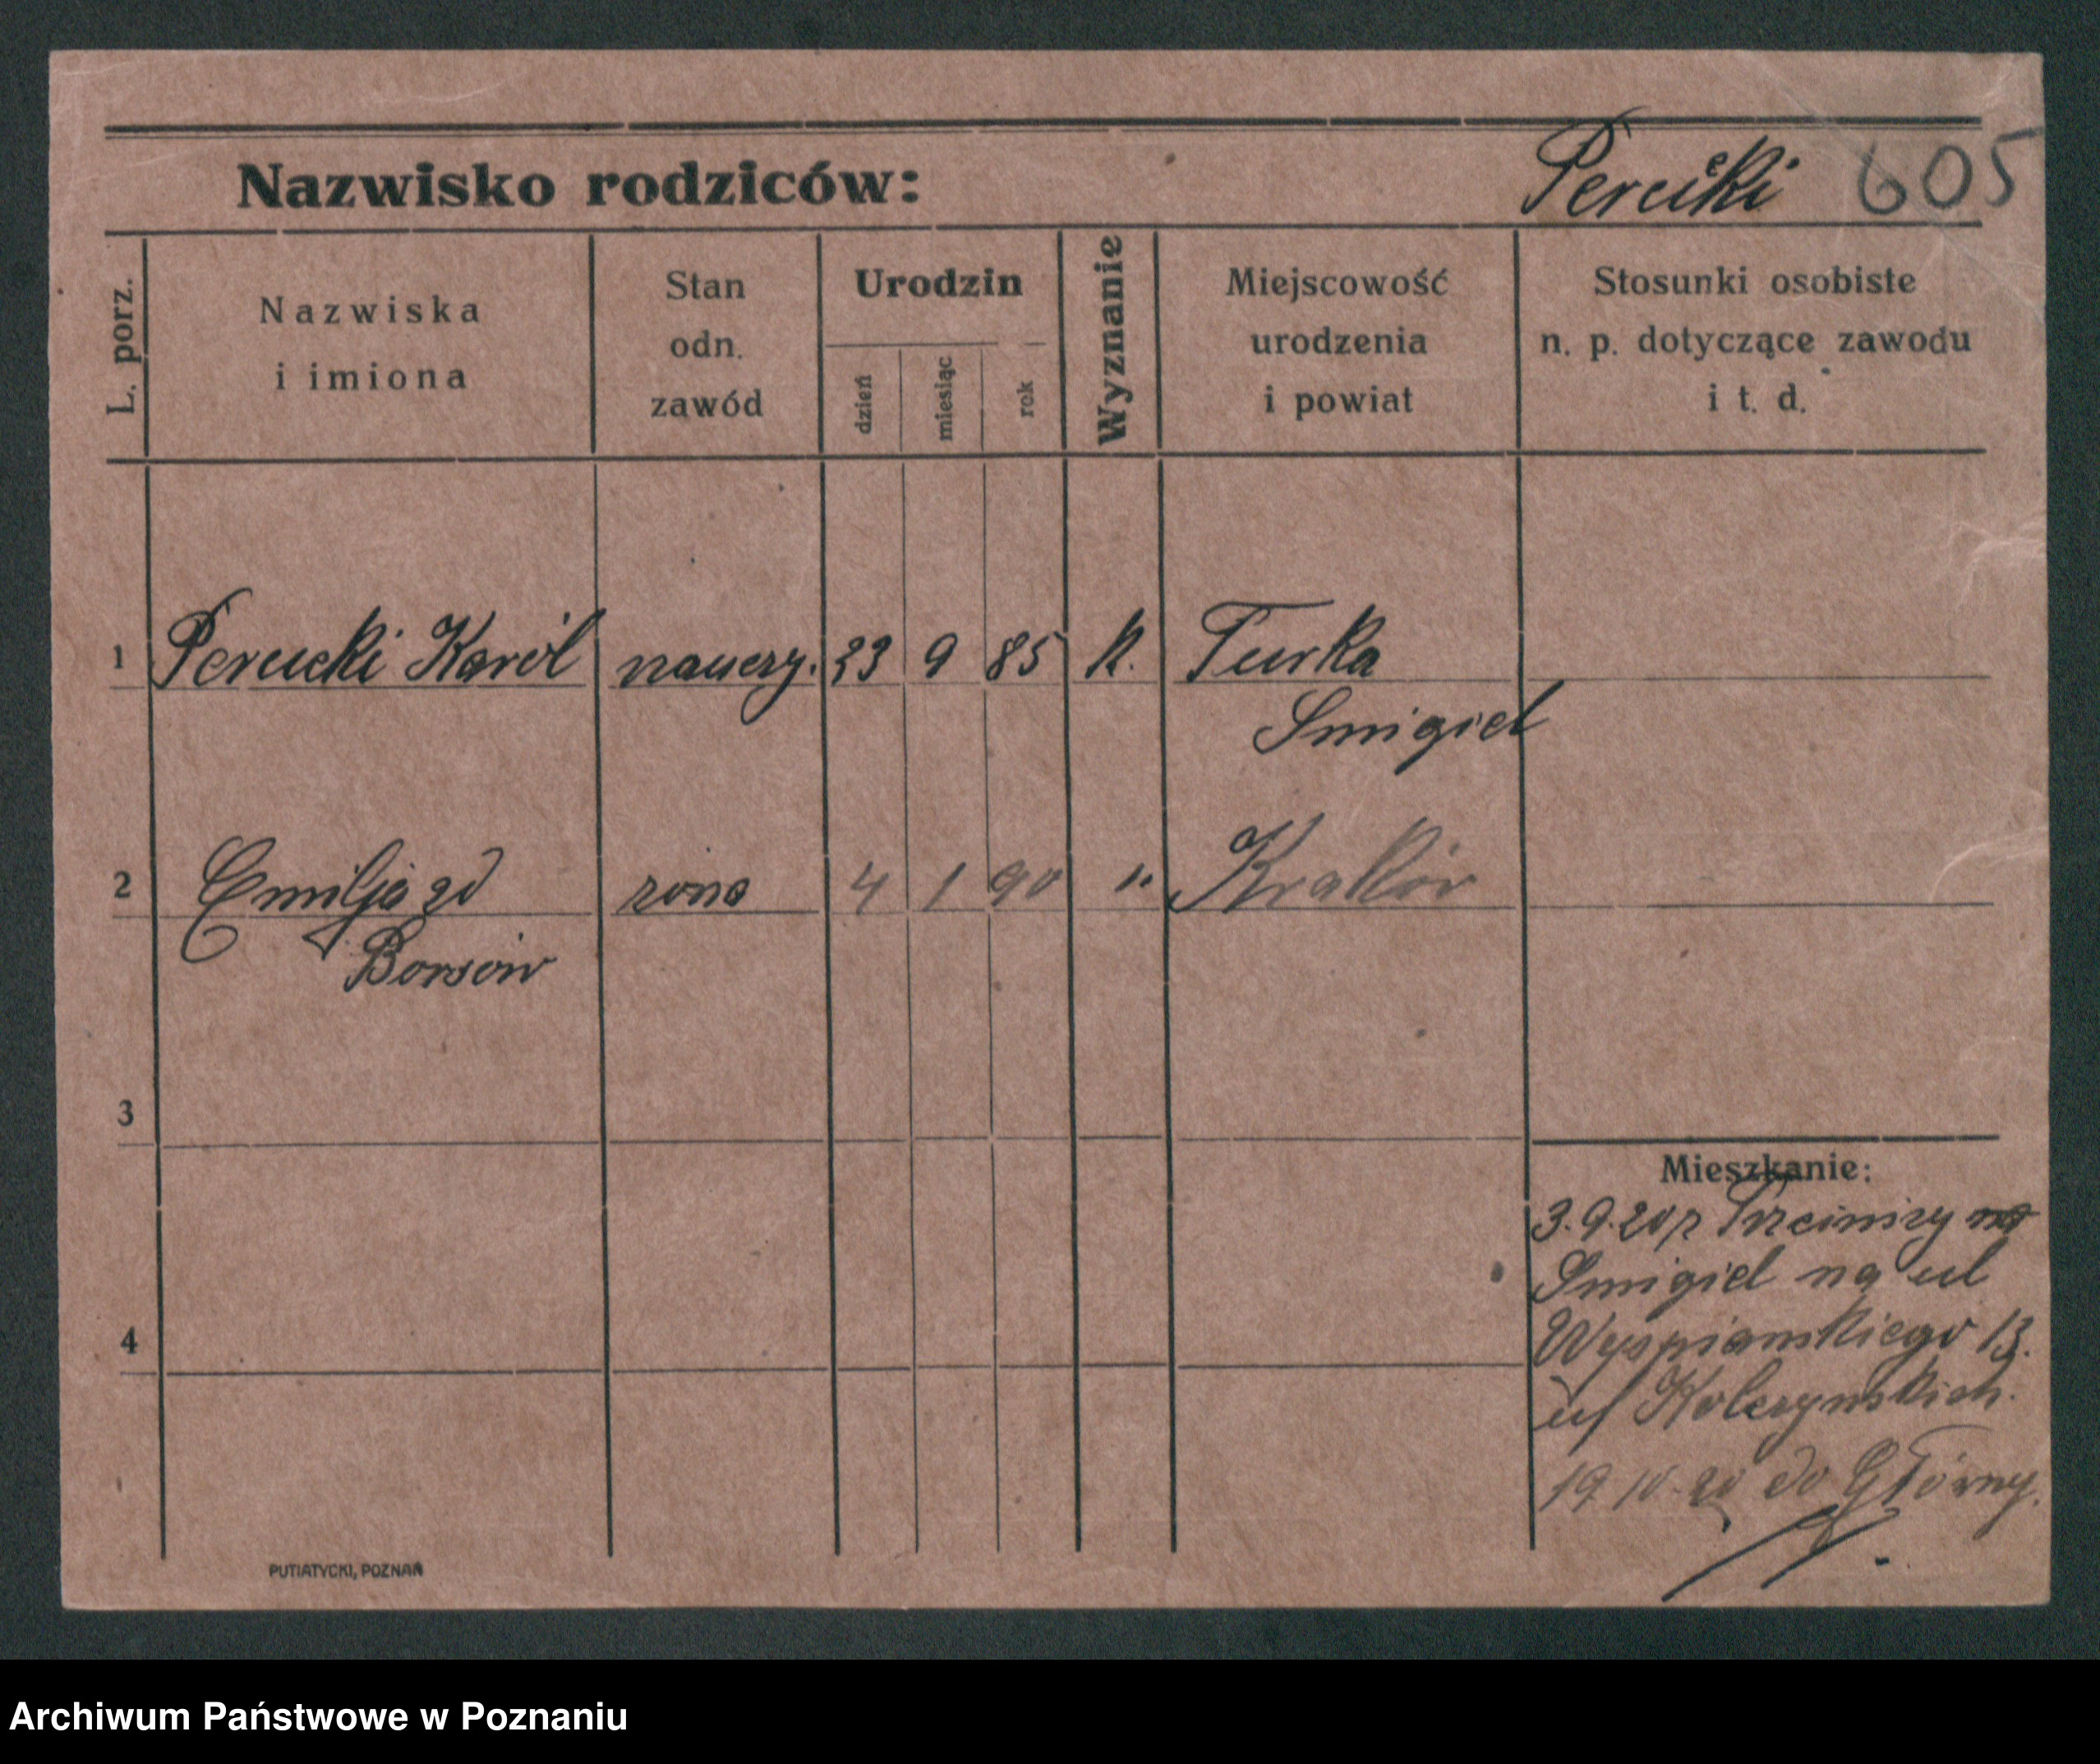 Nazwisko rodziców: Perucki 605
L. porz.
Nazwiska
i imiona
Stan
odn.
zawód
Urodzin
dzień
miesiąc
rok
Wyznanie
Miejscowość
urodzenia
i powiat
Stosunki osobiste
n. p. dotyczące zawodu
i t. d.
1 Perucki Karól nauczy. 23 9 85 k. Turka
Smigiel
2 Emilja zd żona 4 1 90 " Kraków
Borsów
3
4
Mieszkanie:
3.9.20 z
Smigiel na ul
Wyspianskiego 13.
u/ Kolczynskich.
19 10. 20 do Główny.
PUTIATYCKI, POZNAŃ
Archiwum Państwowe w Poznaniu